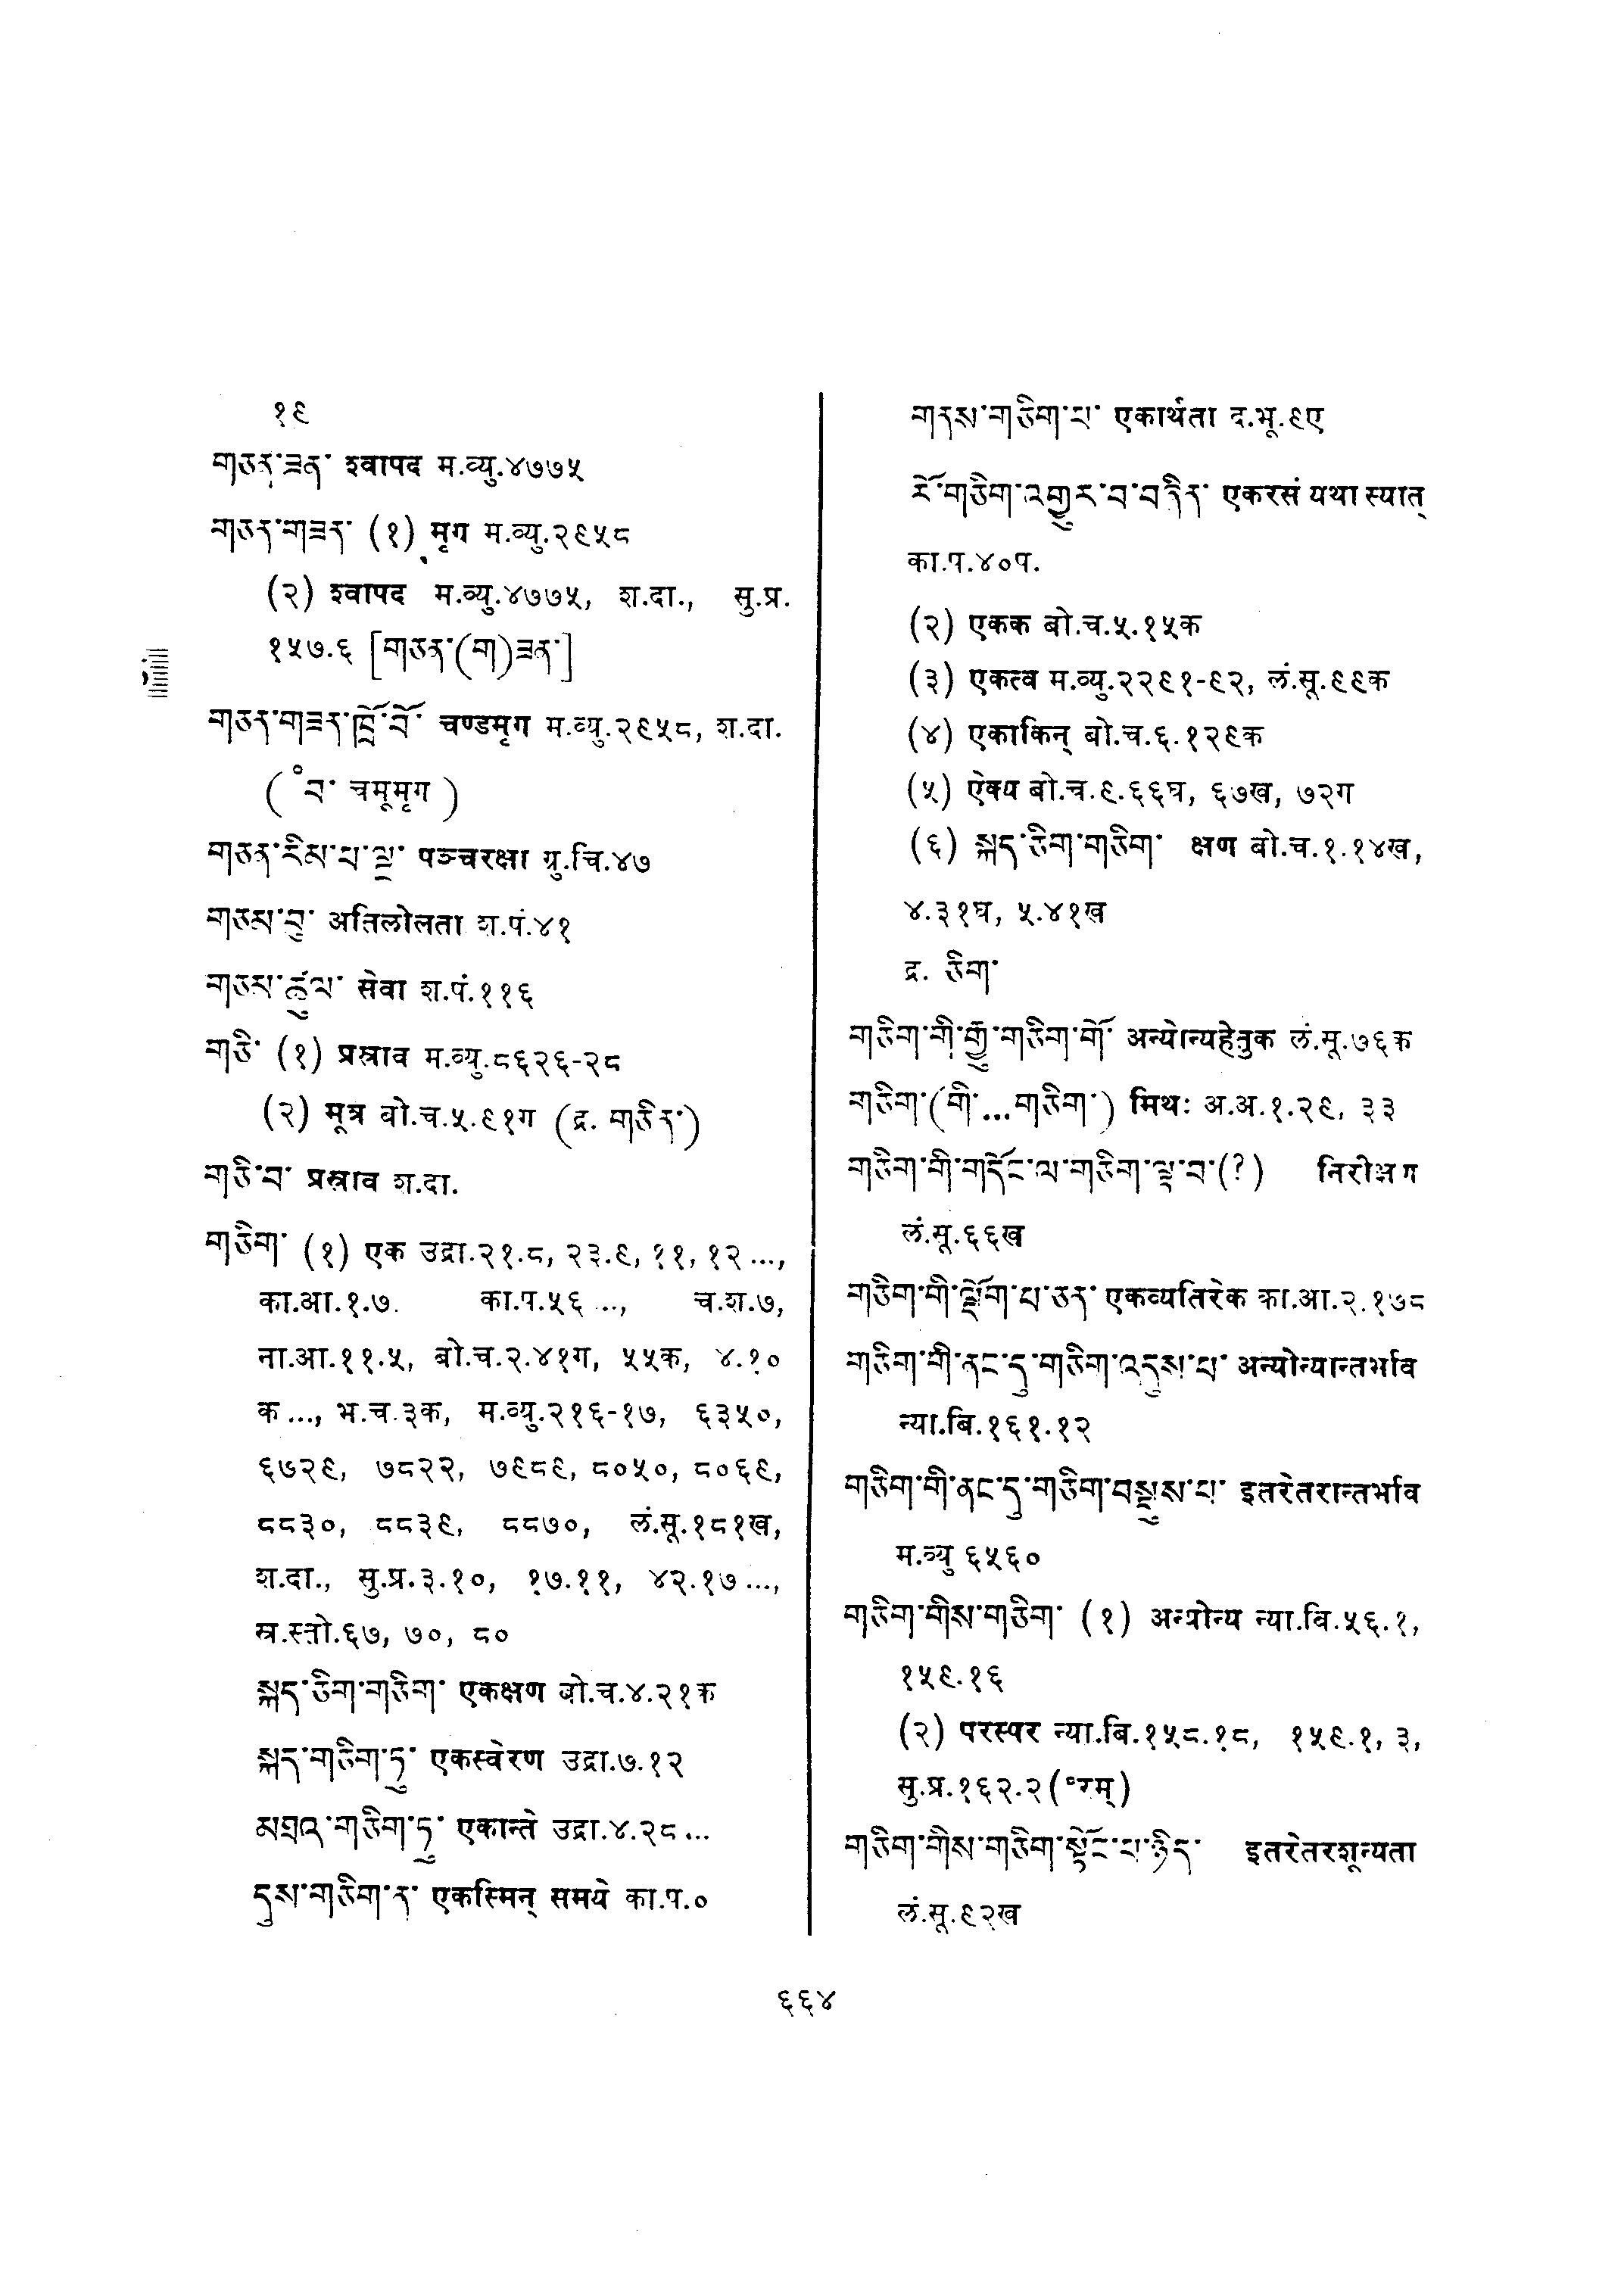 १९
གཅན་ཟན་ श्वापद म.व्यु.४७७५
གཅན་གཟན་ (१) मृग म.व्यु.२९५८
(२) श्वापद म.व्यु.४७७५, श.दा., सु.प्र.
१५७.६ [གཅན་(ག)ཟན་]
གཅན་གཟན་ཁྲོ་བོ་ चण्डमृग म.व्यु.२९५८, श.दा.
(°བ་ चमूमृग )
གཅན་རིམ་པ་ལྔ་ पञ्चरक्षा ग्रु.चि.४७
གཅམ་བུ་ अतिलोलता श.पं.४१
གཅམ་ཚུལ་ सेवा श.पं.११६
གཅི་ (१) प्रस्राव म.व्यु.८६२६-२८
(२) मूत्र बो.च.५.९१ग (द्र. གཅིན་)
གཅི་བ་ प्रस्राव श.दा.
གཅིག་ (१) एक उद्रा.२१.८, २३.९, ११, १२ ...,
का.आ.१.७. का.प.५६ ..., च.श.७,
ना.आ.११.५, बो.च.२.४१ग, ५५क, ४.१०
क ..., भ.च.३क, म.व्यु.२१६-१७, ६३५०,
६७२९, ७८२२, ७९८९, ८०५०, ८०६९,
८८३०, ८८३९, ८८७०, लं.सू.१८१ख,
श.दा., सु.प्र.३.१०, १७.११, ४२.१७ ...,
स्र.स्तो.६७, ७०, ८०
སྐད་ཅིག་གཅིག་ एकक्षण बो.च.४.२१क
སྐད་གཅིག་ཏུ་ एकस्वेरण उद्रा.७.१२
མཐའ་གཅིག་ཏུ་ एकान्ते उद्रा.४.२८ ...
དུས་གཅིག་ན་ एकस्मिन् समये का.प.०
གནས་གཅིག་པ་ एकार्थता द.भू.९ए
རོ་གཅིག་འགྱུར་བ་བཞིན་ एकरसं यथा स्यात्
का.प.४०प.
(२) एकक बो.च.५.१५क
(३) एकत्व म.व्यु.२२९१-९२, लं.सू.९९क
(४) एकाकिन् बो.च.६.१२९क
(५) ऐक्य बो.च.९.६६घ, ६७ख, ७२ग
(६) སྐད་ཅིག་གཅིག་ क्षण बो.च.१.१४ख,
४.३१घ, ५.४१ख
द्र. ཅིག་
གཅིག་གི་རྒྱུ་གཅིག་གོ་ अन्योन्यहेतुक लं.सू.७६क
གཅིག་(གི་...གཅིག་) मिथः अ.अ.१.२९, ३३
གཅིག་གི་གདོང་ལ་གཅིག་ལྟ་བ་(?) निरीक्षण
लं.सू.६६ख
གཅིག་གི་ལྡོག་པ་ཅན་ एकव्यतिरेक का.आ.२.१७८
གཅིག་གི་ནང་དུ་གཅིག་འདུས་པ་ अन्योन्यान्तर्भाव
न्या.बि.१६१.१२
གཅིག་གི་ནང་དུ་གཅིག་བསྡུས་པ་ इतरेतरान्तर्भाव
म.व्यु ६५६०
གཅིག་གིས་གཅིག་ (१) अन्योन्य न्या.बि.५६.१,
१५९.१६
(२) परस्पर न्या.बि.१५८.१८, १५९.१, ३,
सु.प्र.१६२.२ (°रम्)
གཅིག་གིས་གཅིག་སྟོང་པ་ཉིད་ इतरेतरशून्यता
लं.सू.९२ख
६६४